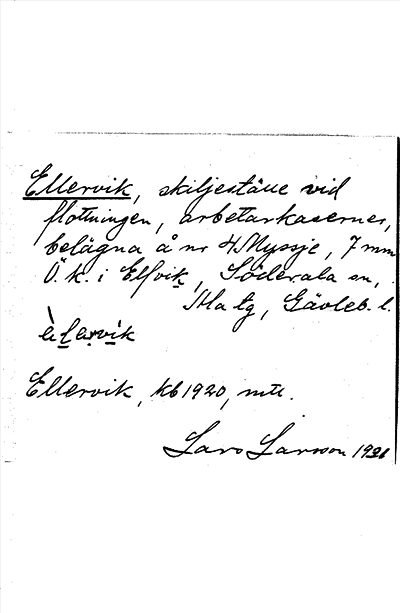 Ellervik, skiljeställe vid
flottningen, arbetarkaserner,
belägna å nr 4 Myssje, 7 mm
Ö. k. i Elfvik, Söderala sn,
Ala tg, Gävleb. l.
Ellervik, kb 1920, mtl.
Lars Larsson 1921